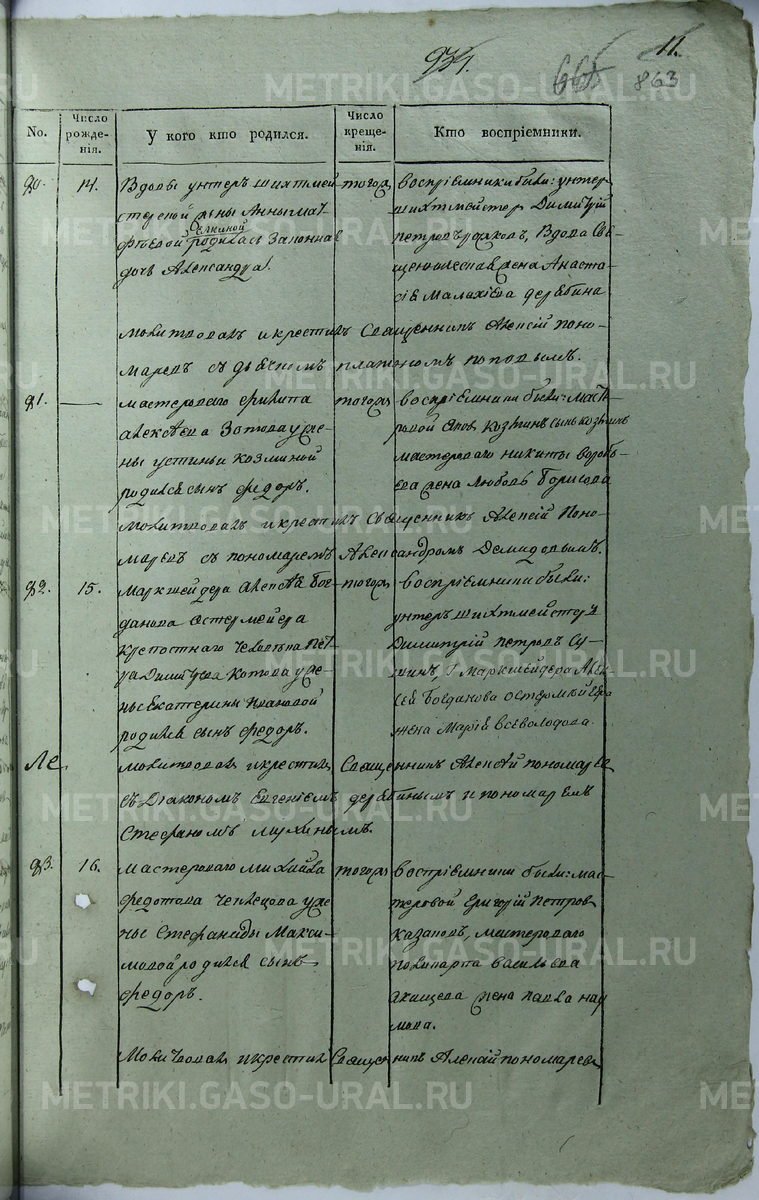 11.
934.
665
863
No.
Число рожде-нія.
У кого кто родился.
Число креще-нія.
Кто воспріемники.
90.
14.
Вдовы унтеръ шихтмей
стерской жены Анны Мат
фѣевой родилась Законная
дочь Александра.
тогожъ
воспріемники были: унтеръ
шихтмейстер Димитрій
Петровъ, Вдова Свя
щенническая жена Анаста
сія Малахіева дерябина
молитвовалъ и крестилъ Священникъ Алексій Поно-
маревъ съ дьячкомъ Платономъ Поповымъ.
91.
мастероваго Филипа
Алексѣева Зотова у же-
ны Устиньи Козминой
родился сынъ Федоръ.
тогожъ
воспріемники были: масте
ровой Козминъ
мастероваго никиты Вороб
ьева жена Любовь Борисова
молитвовалъ и крестилъ священникъ Алексій Поно-
маревъ съ пономаремъ Александромъ Демидовымъ.
92.
15.
Маркшейдера Алексѣя Бог
данова Остермейера
крѣпостнаго человѣка Пет
ра Димитріева Котова у же
ны Екатерины Ивановой
родился сынъ Федоръ.
тогожъ
воспріемники были:
унтеръ шихтмейстеръ
Димитрій Петровъ Су-
шинъ, Маркшейдера Алек
сѣй Богданова остермейера
жена Марія Всеволодова.
молитвовалъ и крестилъ Священникъ Алексѣй пономаревъ
съ Діакономъ Евгеніемъ дерябинымъ и пономаремъ
Стефаномъ мухинымъ.
93.
16.
мастероваго михайла
федотова Чепецова у же
ны Стефаниды Макси-
мовой родился сынъ
Федоръ.
тогожъ
воспріемники были: мас-
теровой Григорій Петровъ
казаковъ, мастероваго
поликарпа васильева
жена павла нау
мова.
Молитвовалъ и крестилъ Священникъ Алексій пономаревъ
METRIKI.GASO-URAL.RU